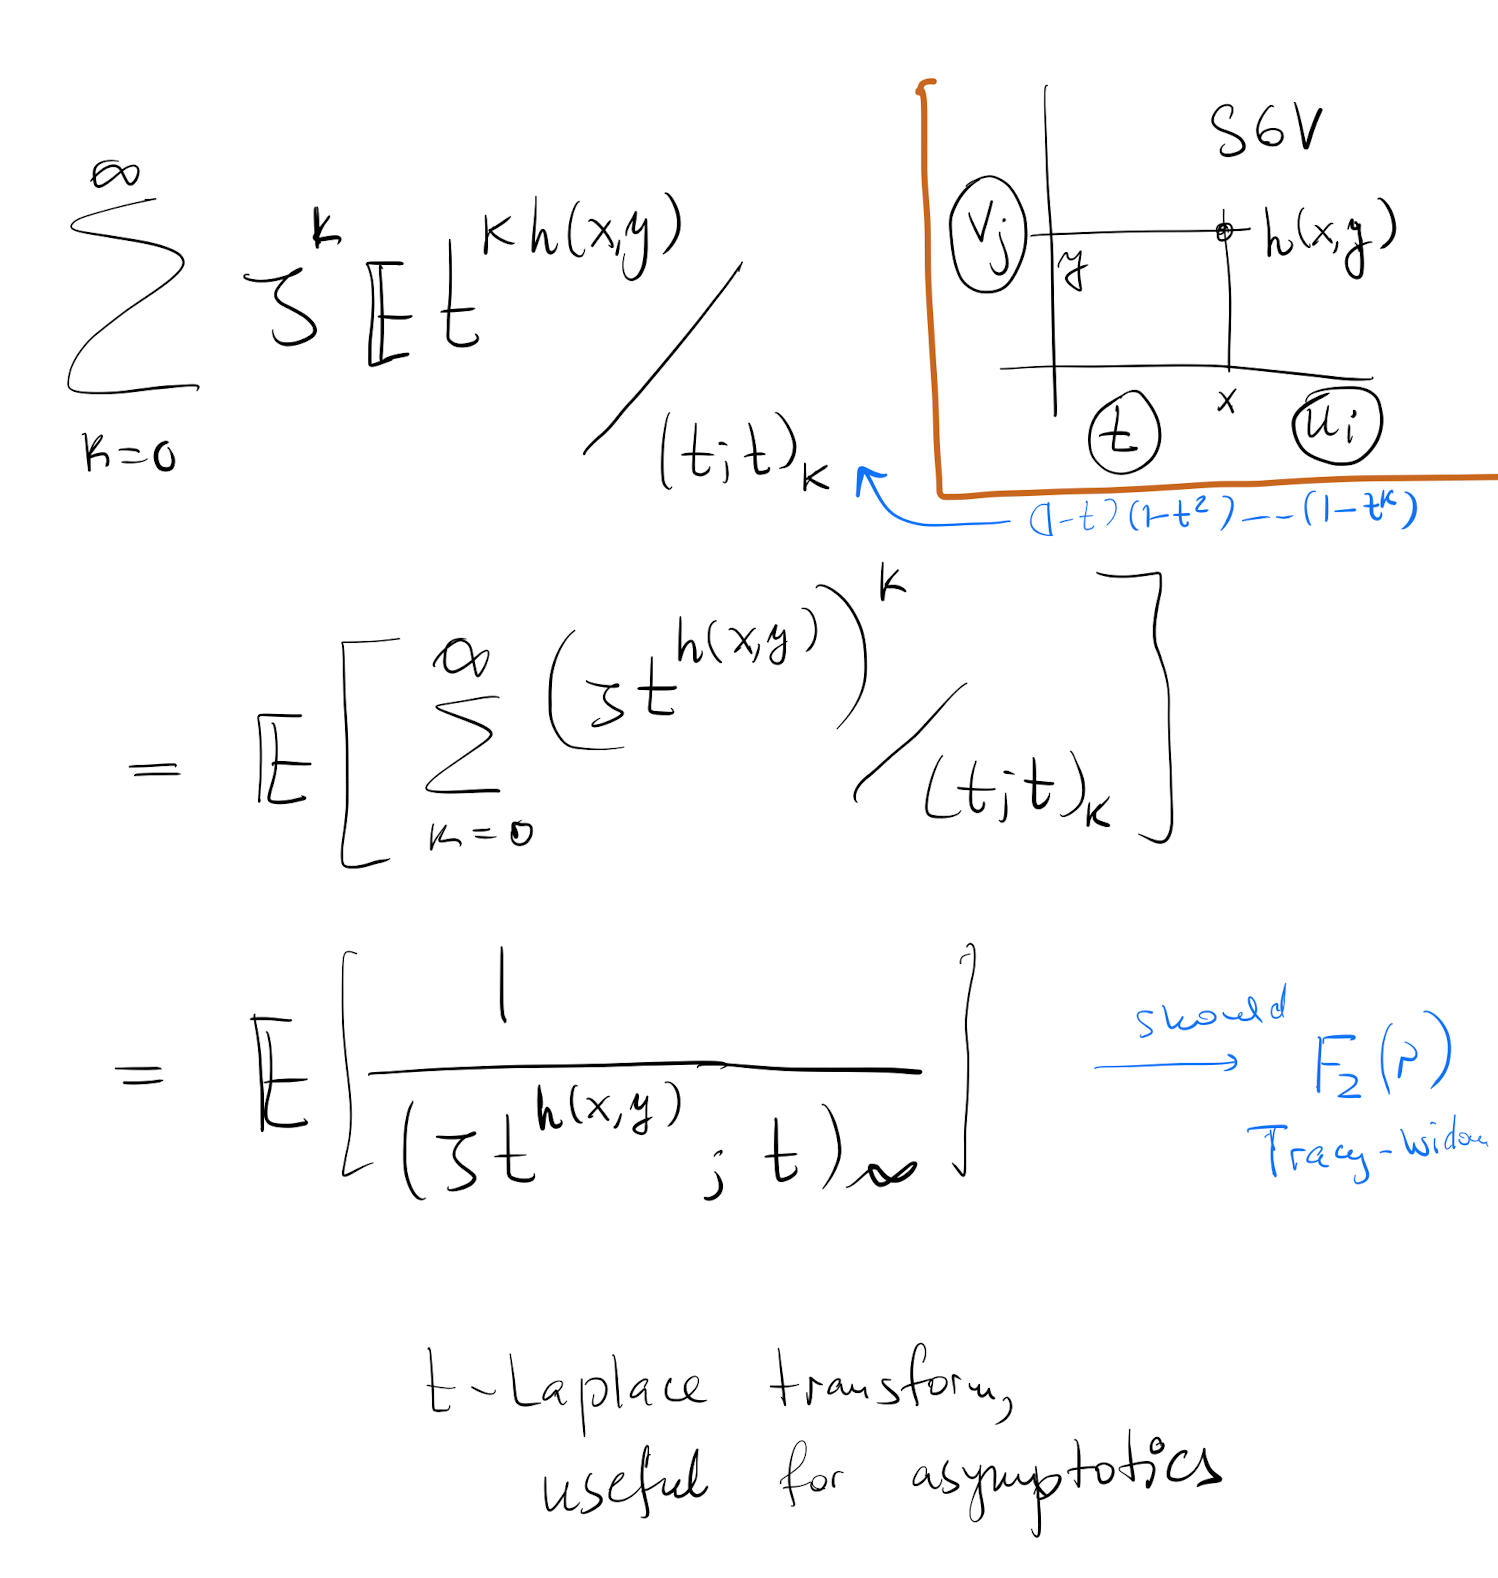 ∞
∑ ζ^k 𝔼 t^{k h(x,y)} / (t;t)_k
k=0
S6V
v_j
y
h(x,y)
t
x
u_i
(1-t)(1-t^2)---(1-t^k)
= 𝔼 [ ∑_{k=0}^{∞} (ζ t^{h(x,y)})^k / (t;t)_k ]
= 𝔼 [ 1 / (ζ t^{h(x,y)} ; t)_∞ ]
should
→ F_2(r)
Tracy-Widom
t-Laplace transform,
useful for asymptotics